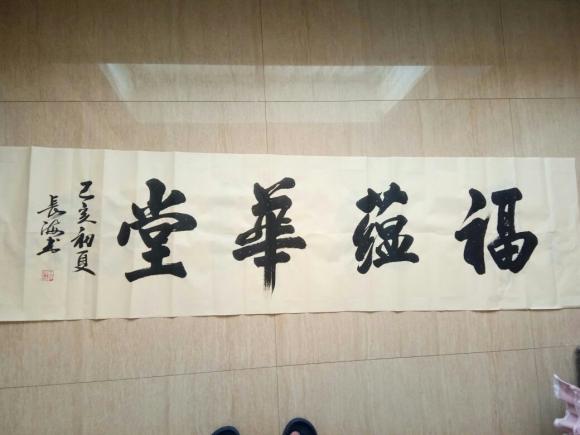 福蕴華堂
己亥初夏
長海书